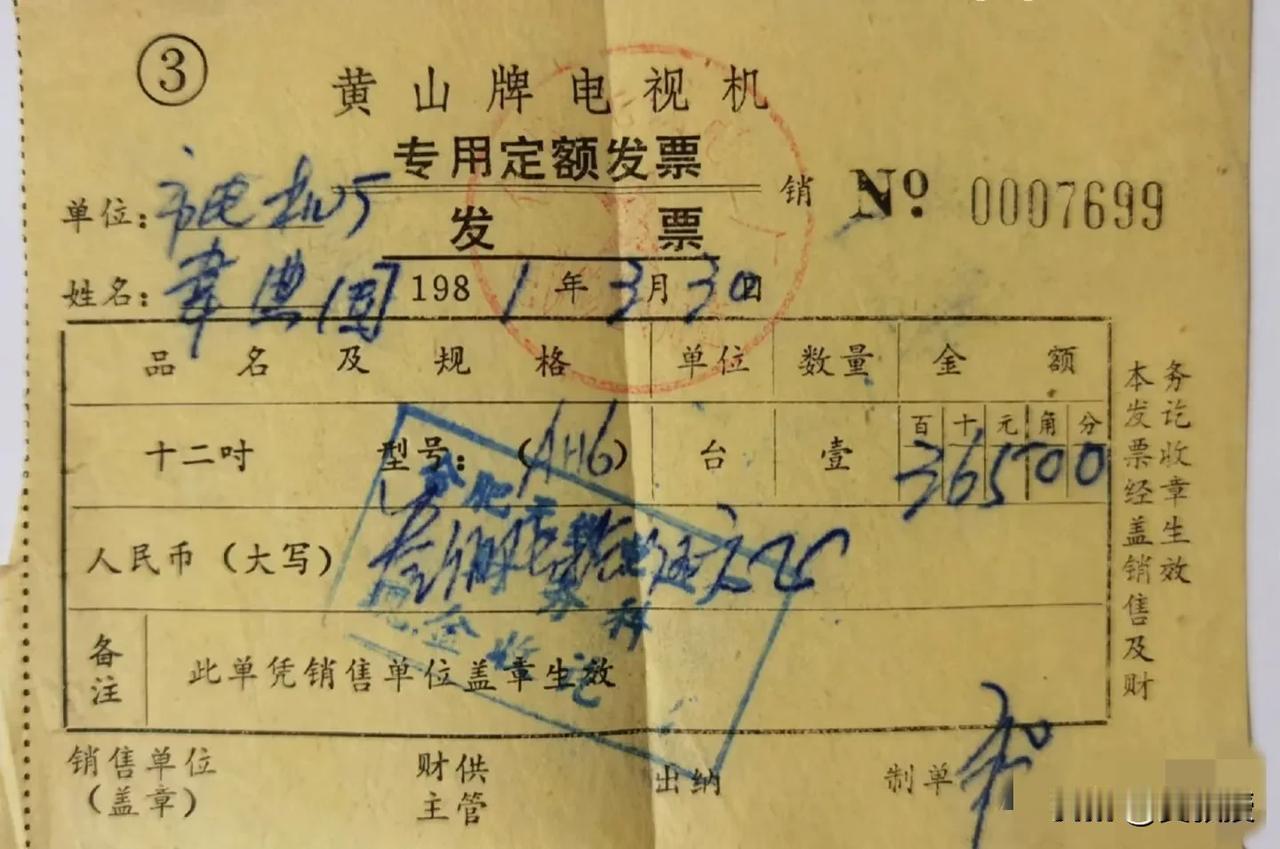 ③
黄山牌电视机
专用定额发票
发票
销 № 0007699
单位：市电机厂
姓名：韦典国 1981年3月30日
品名及规格 单位 数量 金额
百十元角分
十二吋 型号：（AH6） 台 壹 36500
人民币（大写）叁佰陆拾伍元
备注 此单凭销售单位盖章生效
现金收讫
本发票经盖销售及财
务讫收章生效
销售单位（盖章） 财供主管 出纳 制单